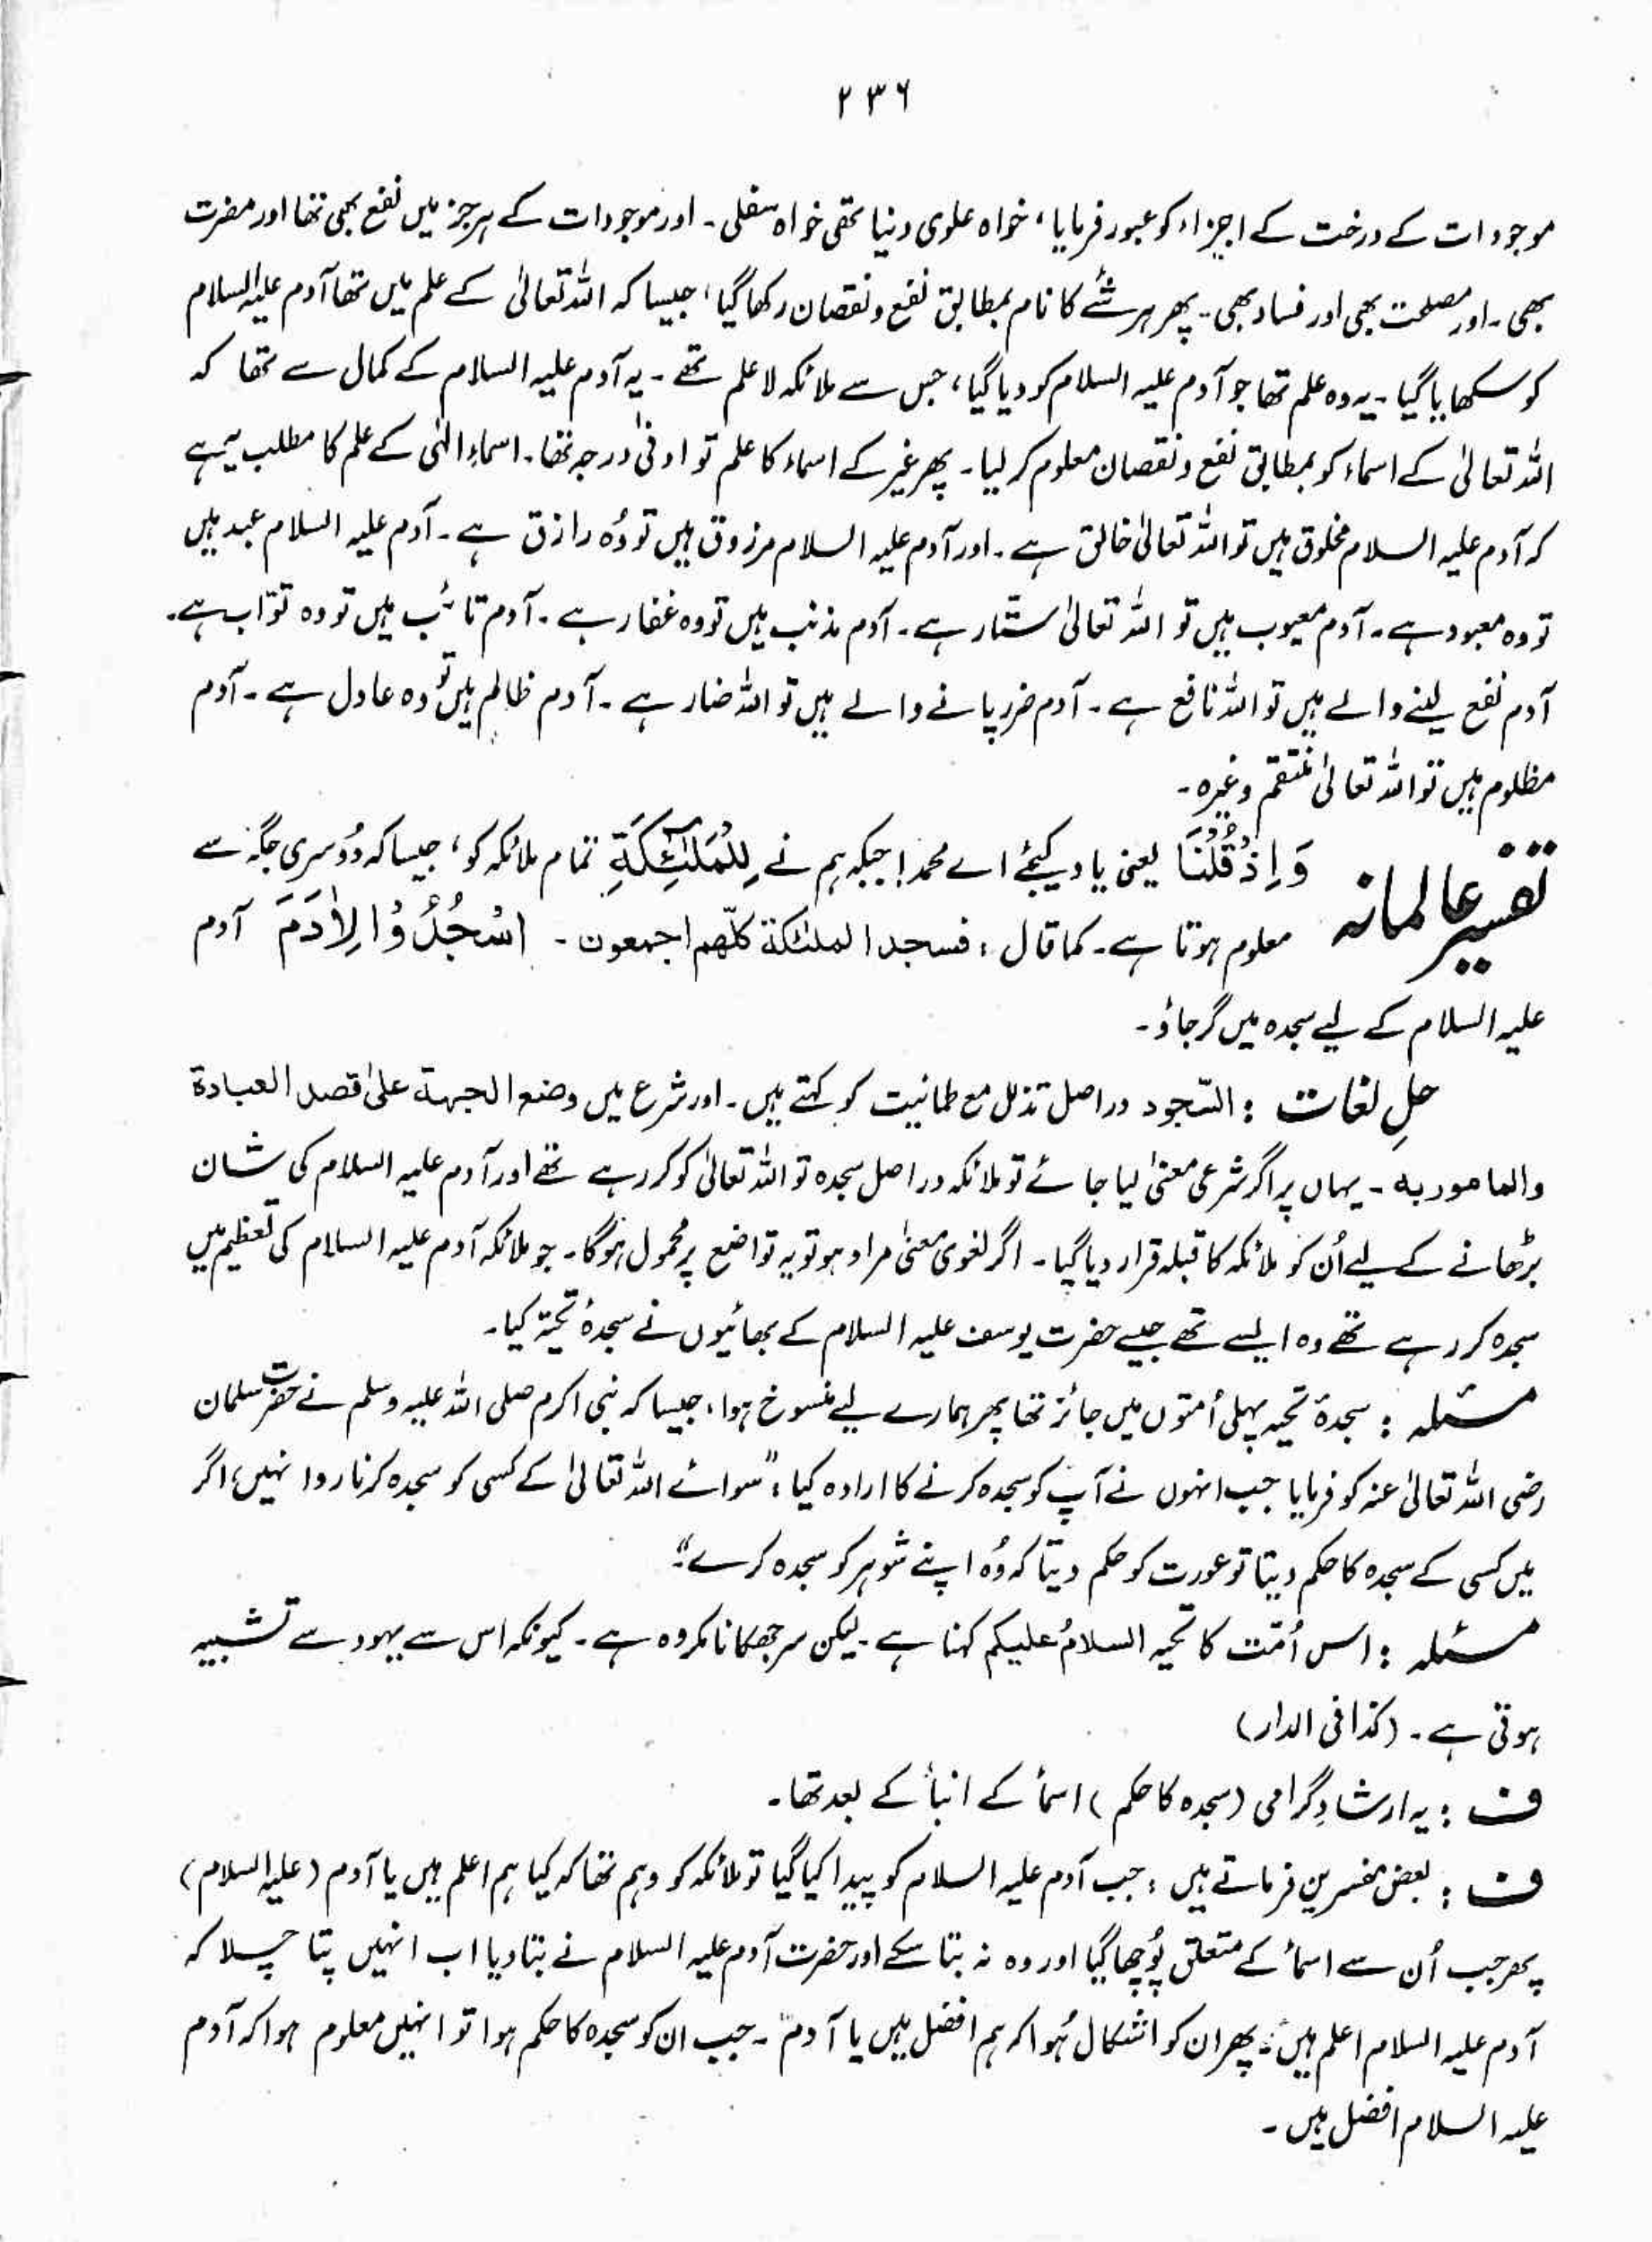 ۲۳۶
موجودات کے درخت کے اجزاء کو عبور فرمایا، خواہ علوی دنیا تھی خواہ سفلی۔ اور موجودات کے ہر جز میں نفع بھی تھا اور مضرت
بھی۔ اور مصلحت بھی اور فساد بھی۔ پھر ہر شے کا نام بمطابق نفع و نقصان رکھا گیا، جیسا کہ اللہ تعالیٰ کے علم میں تھا آدم علیہ السلام
کو سکھایا گیا۔ یہ وہ علم تھا جو آدم علیہ السلام کو دیا گیا، جس سے ملائکہ لاعلم تھے۔ یہ آدم علیہ السلام کے کمال سے تھا کہ
اللہ تعالیٰ کے اسماء کو بمطابق نفع و نقصان معلوم کر لیا۔ پھر غیر کے اسماء کا علم تو ادنیٰ درجہ تھا۔ اسماءِ الٰہی کے علم کا مطلب یہ ہے
کہ آدم علیہ السلام مخلوق ہیں تو اللہ تعالیٰ خالق ہے۔ اور آدم علیہ السلام مرزوق ہیں تو وُہ رازق ہے۔ آدم علیہ السلام عبد ہیں
تو وہ معبود ہے۔ آدم معیوب ہیں تو اللہ تعالیٰ ستّار ہے۔ آدم مذنب ہیں تو وہ غفار ہے۔ آدم تائب ہیں تو وہ توّاب ہے۔
آدم نفع لینے والے ہیں تو اللہ نافع ہے۔ آدم ضرر پانے والے ہیں تو اللہ ضار ہے۔ آدم ظالم ہیں تو وہ عادل ہے۔ آدم
مظلوم ہیں تو اللہ تعالیٰ منتقم وغیرہ۔
تفسیر عالمانہ وَاِذْ قُلْنَا یعنی یاد کیجئے اے محمد! جبکہ ہم نے لِلْمَلٰٓئِكَةِ تمام ملائکہ کو، جیسا کہ دُوسری جگہ سے
معلوم ہوتا ہے۔ کما قال: فسجد الملٰئکة کلّھم اجمعون۔ اسْجُدُوْا لِاٰدَمَ آدم
علیہ السلام کے لیے سجدہ میں گر جاؤ۔
حلِ لغات: السّجود دراصل تذلل مع طمانیت کو کہتے ہیں۔ اور شرع میں وضع الجبہة علیٰ قصد العبادة
والمامور بہ۔ یہاں پر اگر شرعی معنیٰ لیا جائے تو ملائکہ دراصل سجدہ تو اللہ تعالیٰ کو کر رہے تھے اور آدم علیہ السلام کی شان
بڑھانے کے لیے اُن کو ملائکہ کا قبلہ قرار دیا گیا۔ اگر لغوی معنیٰ مراد ہو تو یہ تواضع پر محمول ہوگا۔ جو ملائکہ آدم علیہ السلام کی تعظیم میں
سجدہ کر رہے تھے وہ ایسے تھے جیسے حضرت یوسف علیہ السلام کے بھائیوں نے سجدۂ تحیۃ کیا۔
مسئلہ: سجدۂ تحیہ پہلی اُمتوں میں جائز تھا پھر ہمارے لیے منسوخ ہوا، جیسا کہ نبی اکرم صلی اللہ علیہ وسلم نے حضرت سلمان
رضی اللہ تعالیٰ عنہ کو فرمایا جب انہوں نے آپ کو سجدہ کرنے کا ارادہ کیا: "سوائے اللہ تعالیٰ کے کسی کو سجدہ کرنا روا نہیں، اگر
میں کسی کے سجدہ کا حکم دیتا تو عورت کو حکم دیتا کہ وُہ اپنے شوہر کو سجدہ کرے"۔
مسئلہ: اس اُمّت کا تحیہ السلامُ علیکم کہنا ہے۔ لیکن سر جھکانا مکروہ ہے۔ کیونکہ اس سے یہود سے تشبیہ
ہوتی ہے۔ (کذا فی الدار)
ف: یہ ارشادِ گرامی (سجدہ کا حکم) اسمأ کے انبأ کے بعد تھا۔
ف: بعض مفسرین فرماتے ہیں: جب آدم علیہ السلام کو پیدا کیا گیا تو ملائکہ کو وہم تھا کہ کیا ہم اعلم ہیں یا آدم (علیہ السلام)
پھر جب اُن سے اسمأ کے متعلق پُوچھا گیا اور وہ نہ بتا سکے اور حضرت آدم علیہ السلام نے بتا دیا اب انہیں پتا چلا کہ
آدم علیہ السلام اعلم ہیں۔ پھر ان کو اشکال ہُوا کہ ہم افضل ہیں یا آدمؑ۔ جب ان کو سجدہ کا حکم ہوا تو انہیں معلوم ہوا کہ آدم
علیہ السلام افضل ہیں۔